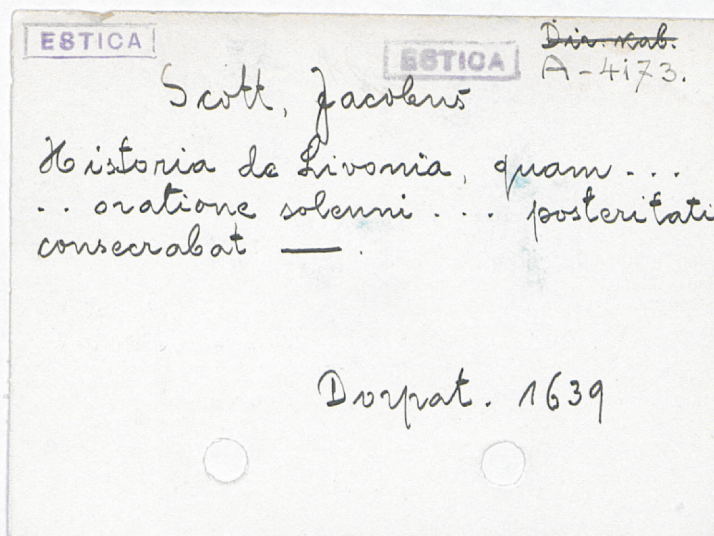 ESTICA
ESTICA
Dir. kab.
A-4173.
Scott, Jacobus
Historia de Livonia, quam ...
.. oratione solenni ... posteritati
consecrabat —.
Dorpat. 1639